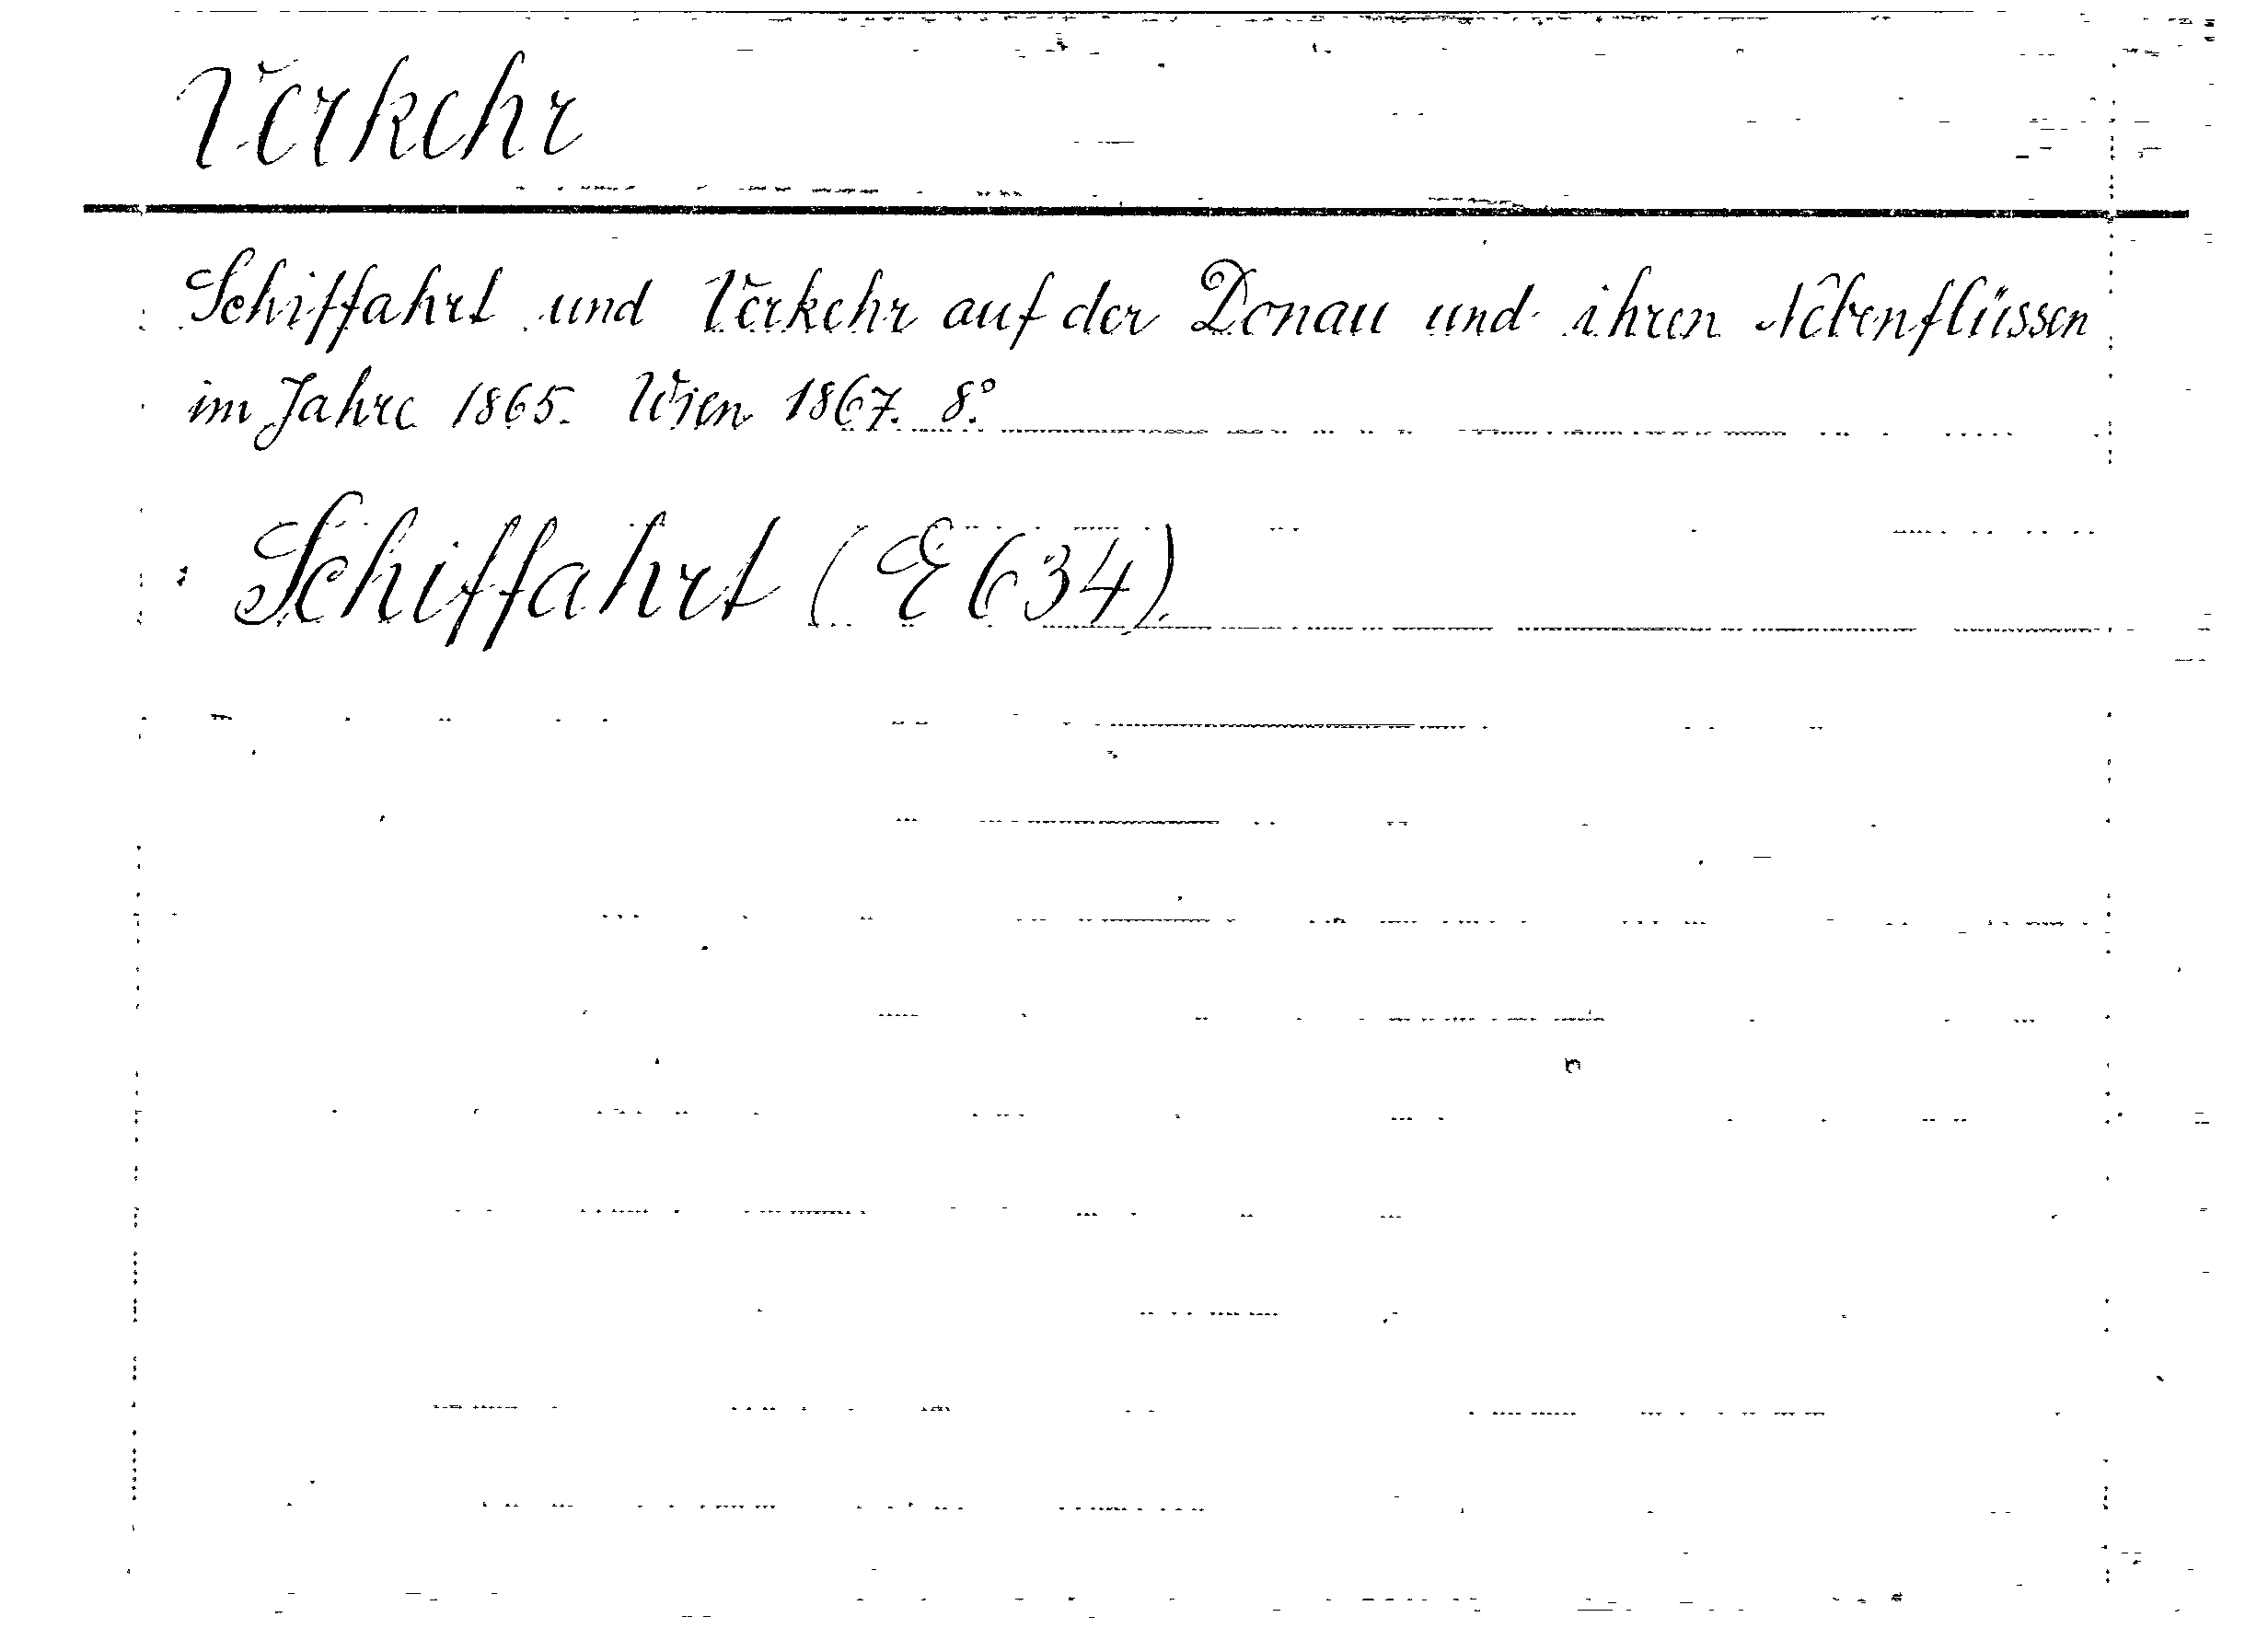 Verkehr
Schiffahrt und Verkehr auf der Donau und ihren Nebenflüssen
im Jahre 1865. Wien 1867. 8°.
: Schiffahrt (E 634).